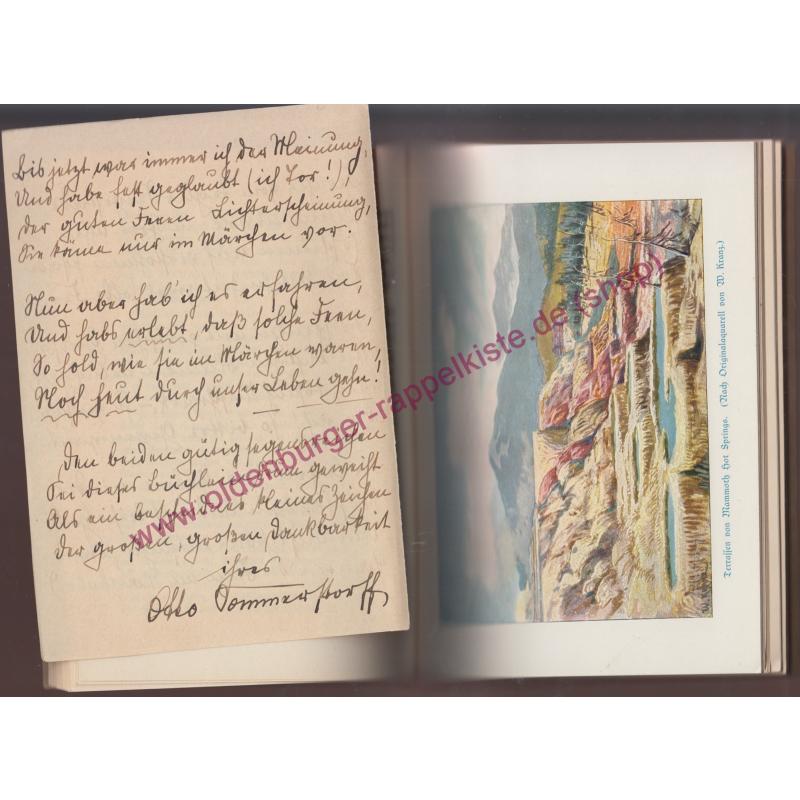 Bis jetzt war immer ich der Meinung,
Und habe fest geglaubt (ich Tor!),
Der guten Feen Lichterscheinung,
Sie käme nur im Märchen vor.
Nun aber hab' ich es erfahren,
Und habs erlebt, daß solche Feen,
So hold, wie sie im Märchen waren,
Noch heut durch unser Leben gehn!
Den beiden gütig segensreichen
Sei dieses Büchlein geweiht
Als ein bescheidnes kleines Zeichen
Der großen, großen Dankbarkeit
ihres
Otto Sommerstorff
Terrassen von Mammoth Hot Springs. (Nach Originalaquarell von W. Kranz.)
www.oldenburger-rappelkiste.de (shop)